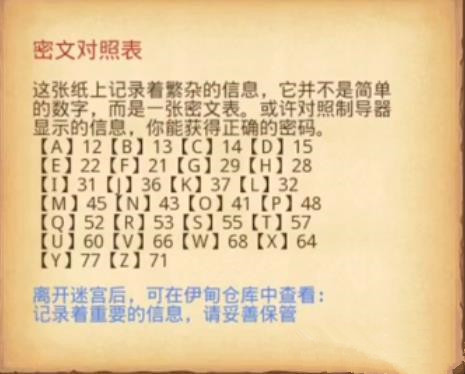 密文对照表
这张纸上记录着繁杂的信息，它并不是简单
的数字，而是一张密文表。或许对照制导器
显示的信息，你能获得正确的密码。
【A】12【B】13【C】14【D】15
【E】22【F】21【G】29【H】28
【I】31【J】36【K】37【L】32
【M】45【N】43【O】41【P】48
【Q】52【R】53【S】55【T】57
【U】60【V】66【W】68【X】64
【Y】77【Z】71
离开迷宫后，可在伊甸仓库中查看：
记录着重要的信息，请妥善保管